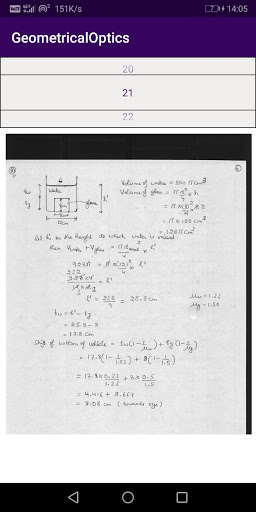 151K/s
14:05
GeometricalOptics
20
21
22
water
glass
h'
12cm
Volume of water = 800 π cm³
Volume of glass = π d²/4 × h
= π × 128 cm³
= 128π cm³
Let h' be the height to which water is raised.
then Vwater + Vglass = π d²/4 × h'
928π = π × (12)²/4 × h'
h' = 232/9 = 25.8 cm
μw = 1.33
μg = 1.50
tw = h' - tg
= 25.8 - 8
= 17.8 cm
Shift of bottom of vehicle = tw(1 - 1/μw) + tg(1 - 1/μg)
= 17.8(1 - 1/1.33) + 8(1 - 1/1.5)
= 17.8 × 0.33/1.33 + 8 × 0.5/1.5
= 4.416 + 2.667
= 7.08 cm (towards eye)